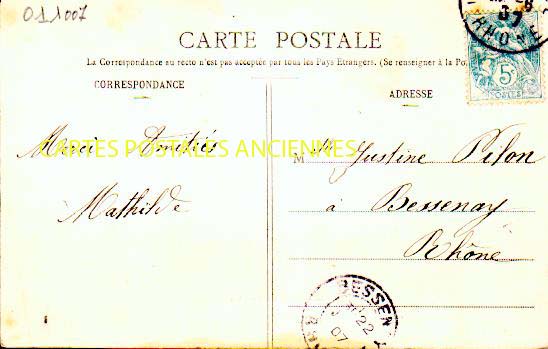 011007
CARTE POSTALE
La Correspondance au recto n'est pas acceptée par tous les Pays Etrangers. (Se renseigner à la Po
CORRESPONDANCE
ADRESSE
5c
POSTES
RHONE
07
Merci Amitiés
CARTES POSTALES ANCIENNES
Mathilde
Mlle Justine Pilon
à Bessenay
Rhône
BESSEN
22
07